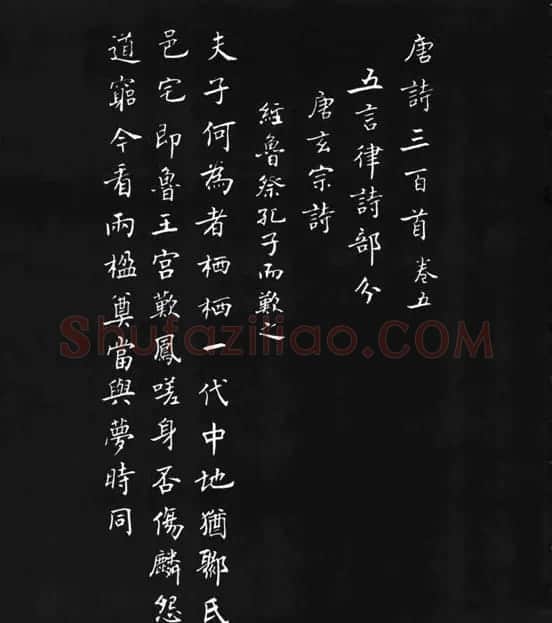 唐詩三百首 卷五
五言律詩部分
唐玄宗詩
經魯祭孔子而歎之
夫子何為者栖栖一代中地猶鄹氏
邑宅即魯王宮歎鳳嗟身否傷麟怨
道窮今看兩楹奠當與夢時同
Shufaziliao.COM